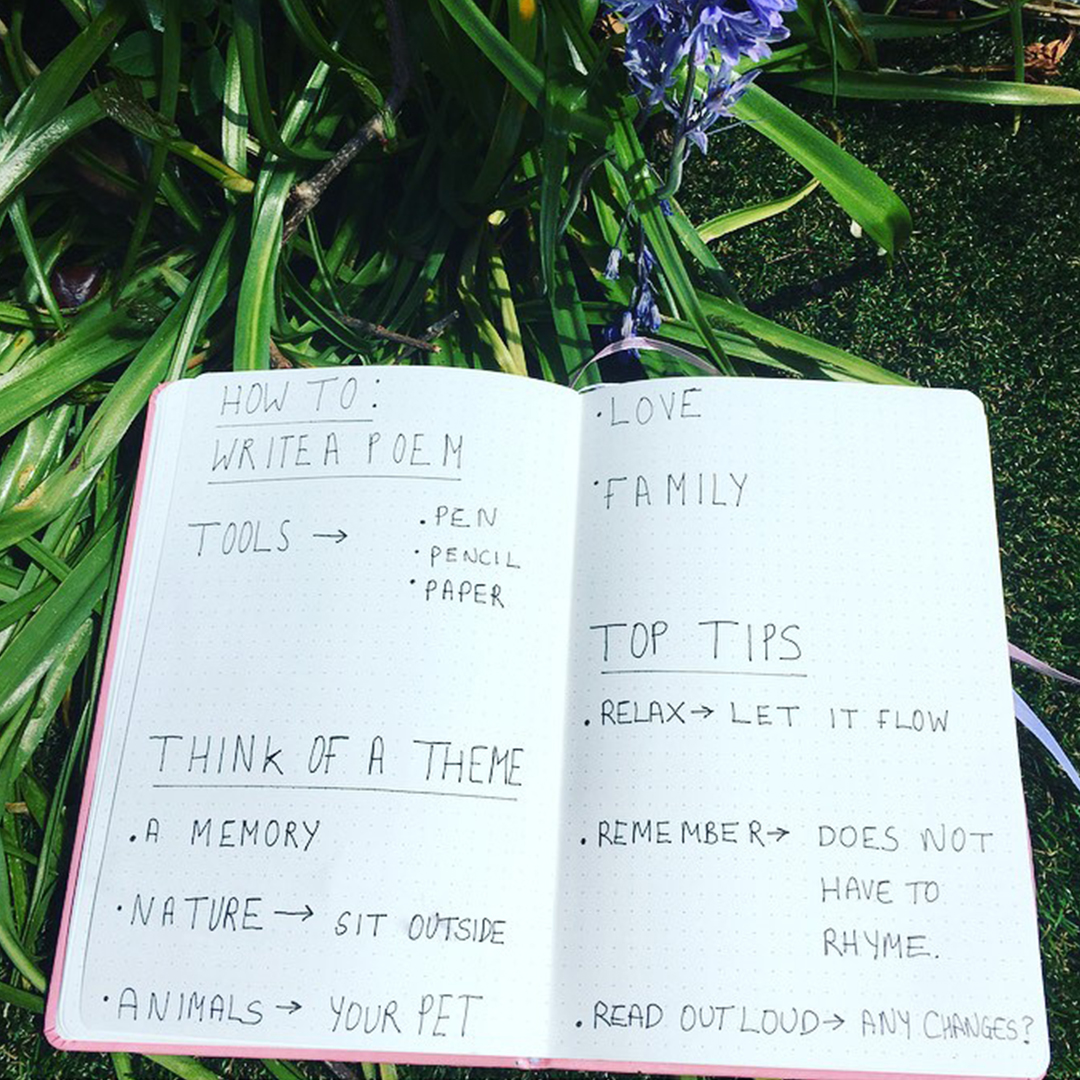 HOW TO:
WRITE A POEM
TOOLS → • PEN
• PENCIL
• PAPER
THINK OF A THEME
• A MEMORY
• NATURE → SIT OUTSIDE
• ANIMALS → YOUR PET
• LOVE
• FAMILY
TOP TIPS
• RELAX → LET IT FLOW
• REMEMBER → DOES NOT
HAVE TO
RHYME.
• READ OUT LOUD → ANY CHANGES?